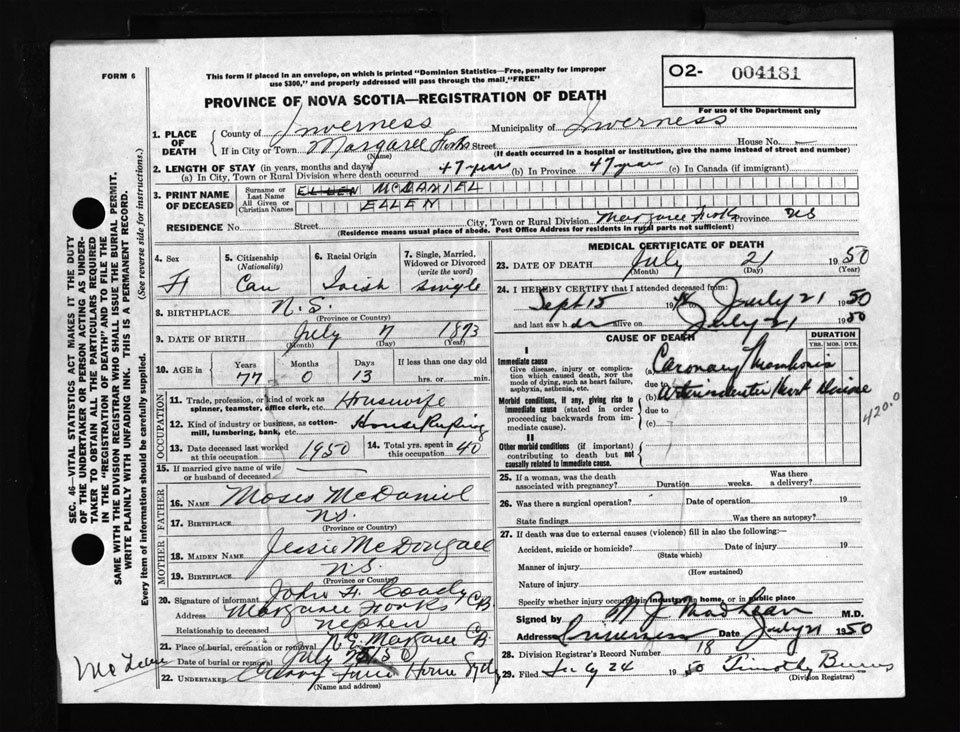 FORM 6
This form if placed in an envelope, on which is printed "Dominion Statistics—Free, penalty for improper
use $300," and properly addressed will pass through the mail, "FREE"
O2- 004181
For use of the Department only
PROVINCE OF NOVA SCOTIA—REGISTRATION OF DEATH
1. PLACE OF DEATH
County of Inverness Municipality of Inverness
If in City or Town Margaree Forks Street House No.
(Name) (If death occurred in a hospital or institution, give the name instead of street and number)
2. LENGTH OF STAY (in years, months and days)
(a) In City, Town or Rural Division where death occurred 47 years (b) In Province 47 years (c) In Canada (if immigrant)
3. PRINT NAME OF DECEASED
Surname or Last Name ELLEN MCDANIEL
All Given or Christian Names ELLEN
RESIDENCE No. Street City, Town or Rural Division Margaree Forks Province NS
(Residence means usual place of abode. Post Office Address for residents in rural parts not sufficient)
4. Sex F
5. Citizenship (Nationality) Can
6. Racial Origin Irish
7. Single, Married, Widowed or Divorced (write the word) single
8. BIRTHPLACE N.S.
(Province or Country)
9. DATE OF BIRTH July 7 1873
(Month) (Day) (Year)
10. AGE in Years 77 Months 0 Days 13 If less than one day old hrs. or min.
OCCUPATION
11. Trade, profession, or kind of work as spinner, teamster, office clerk, etc. Housewife
12. Kind of industry or business, as cotton-mill, lumbering, bank, etc. House Keeping
13. Date deceased last worked at this occupation 1950
14. Total yrs. spent in this occupation 40
15. If married give name of wife or husband of deceased
FATHER
16. NAME Moses McDaniel
17. BIRTHPLACE N.S.
(Province or Country)
MOTHER
18. MAIDEN NAME Jessie McDougall
19. BIRTHPLACE N.S.
(Province or Country)
20. Signature of informant John F. Coady
Address Margaree Forks C.B.
Relationship to deceased nephew
21. Place of burial, cremation or removal N.E. Margaree C.B.
Date of burial or removal July
22. UNDERTAKER Home
(Name and address)
MEDICAL CERTIFICATE OF DEATH
23. DATE OF DEATH July 21 1950
(Month) (Day) (Year)
24. I HEREBY CERTIFY that I attended deceased from:
Sept 15 19 to July 21 1950
and last saw h er alive on July 21 1950
CAUSE OF DEATH
DURATION
YRS. MOS. DYS.
I
Immediate cause
Give disease, injury or complication which caused death, NOT the mode of dying, such as heart failure, asphyxia, asthenia, etc.
(a) Coronary Thrombosis
due to
Morbid conditions, if any, giving rise to immediate cause (stated in order proceeding backwards from immediate cause).
(b) Heart Disease
due to
(c)
420.0
II
Other morbid conditions (if important) contributing to death but not causally related to immediate cause.
25. If a woman, was the death associated with pregnancy? Duration weeks. Was there a delivery?
26. Was there a surgical operation? Date of operation 19
State findings Was there an autopsy?
27. If death was due to external causes (violence) fill in also the following:—
Accident, suicide or homicide? Date of injury 19
(State which)
Manner of injury
(How sustained)
Nature of injury
Specify whether injury occurred in industry, in home, or in public place
Signed by M.D.
Address Inverness Date July 21 1950
28. Division Registrar's Record Number 18
29. Filed July 24 1950 Timothy Burns
(Division Registrar)
SEC. 46—VITAL STATISTICS ACT MAKES IT THE DUTY
OF THE UNDERTAKER OR PERSON ACTING AS UNDER-
TAKER TO OBTAIN ALL THE PARTICULARS REQUIRED
IN THE "REGISTRATION OF DEATH" AND TO FILE THE
SAME WITH THE DIVISION REGISTRAR WHO SHALL ISSUE THE BURIAL PERMIT.
WRITE PLAINLY WITH UNFADING INK. THIS IS A PERMANENT RECORD.
Every item of information should be carefully supplied. (See reverse side for instructions.)